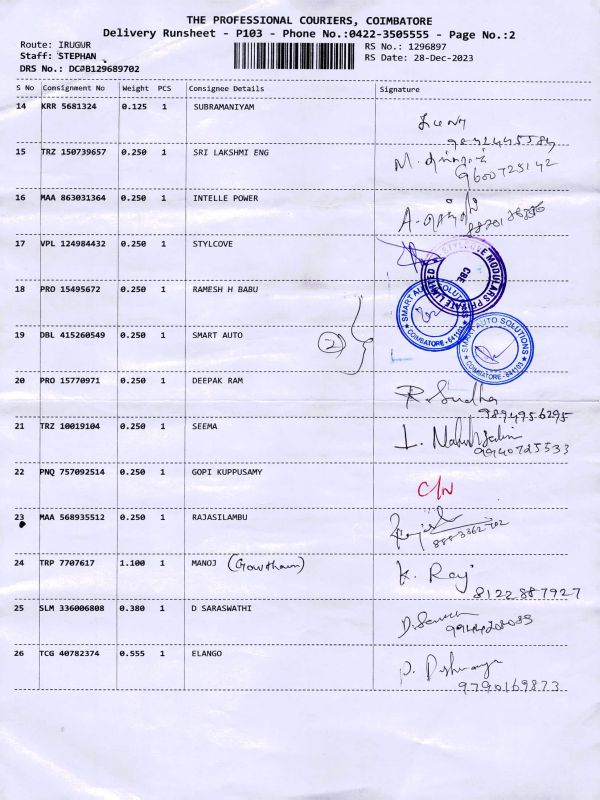 THE PROFESSIONAL COURIERS, COIMBATORE
Delivery Runsheet - P103 - Phone No.:0422-3505555 - Page No.:2
Route: IRUGUR RS No.: 1296897
Staff: STEPHAN RS Date: 28-Dec-2023
DRS No.: DC0B129689702
S No Consignment No Weight PCS Consignee Details Signature
14 KRR 5681324 0.125 1 SUBRAMANIYAM
15 TRZ 150739657 0.250 1 SRI LAKSHMI ENG M. 9600725142
16 MAA 863031364 0.250 1 INTELLE POWER A.
17 VPL 124984432 0.250 1 STYLCOVE STYLCOVE MODULARS PRIVATE LIMITED CBE
18 PRO 15495672 0.250 1 RAMESH H BABU SMART AUTO SOLUTIONS COIMBATORE - 641103
19 DBL 415260549 0.250 1 SMART AUTO (2) SMART AUTO SOLUTIONS COIMBATORE - 641103
20 PRO 15770971 0.250 1 DEEPAK RAM R. Sudha 9894956295
21 TRZ 10019104 0.250 1 SEEMA 9940725533
22 PNQ 757092514 0.250 1 GOPI KUPPUSAMY C/N
23 MAA 568935512 0.250 1 RAJASILAMBU
24 TRP 7707617 1.100 1 MANOJ (Gowtham) K. Raj 8122887927
25 SLM 336006808 0.380 1 D SARASWATHI
26 TCG 40782374 0.555 1 ELANGO 9790169873